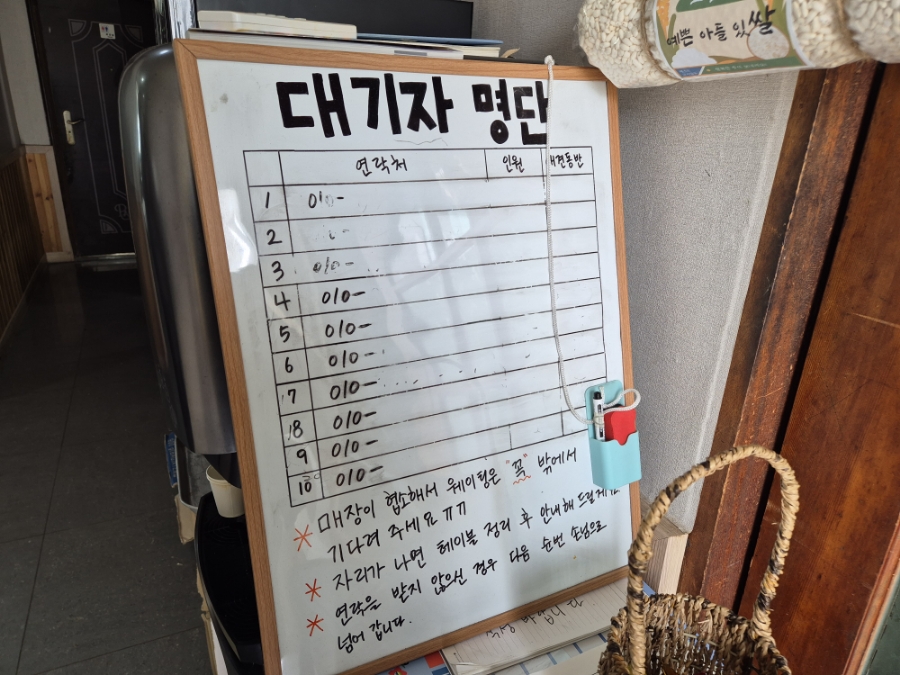 예쁜 아들 있쌀
대기자 명단
연락처 인원 애견동반
1 010-
2
3 010-
4 010-
5 010-
6 010-
7 010-
8 010-
9 010-
10 010-
* 매장이 협소해서 웨이팅은 "꼭" 밖에서
기다려 주세요 ㅠㅠ
* 자리가 나면 테이블 정리 후 안내해 드릴게요
* 연락을 받지 않으신 경우 다음 순번 손님으로
넘어 갑니다.